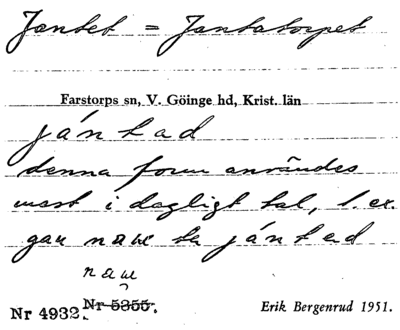 Jantet = Jantatorpet
Farstorps sn, V. Göinge hd, Krist. län
jántad
denna form användes
mest i dagligt tal, t. ex.
naw
Nr 4932. Nr 5355.
Erik Bergenrud 1951.